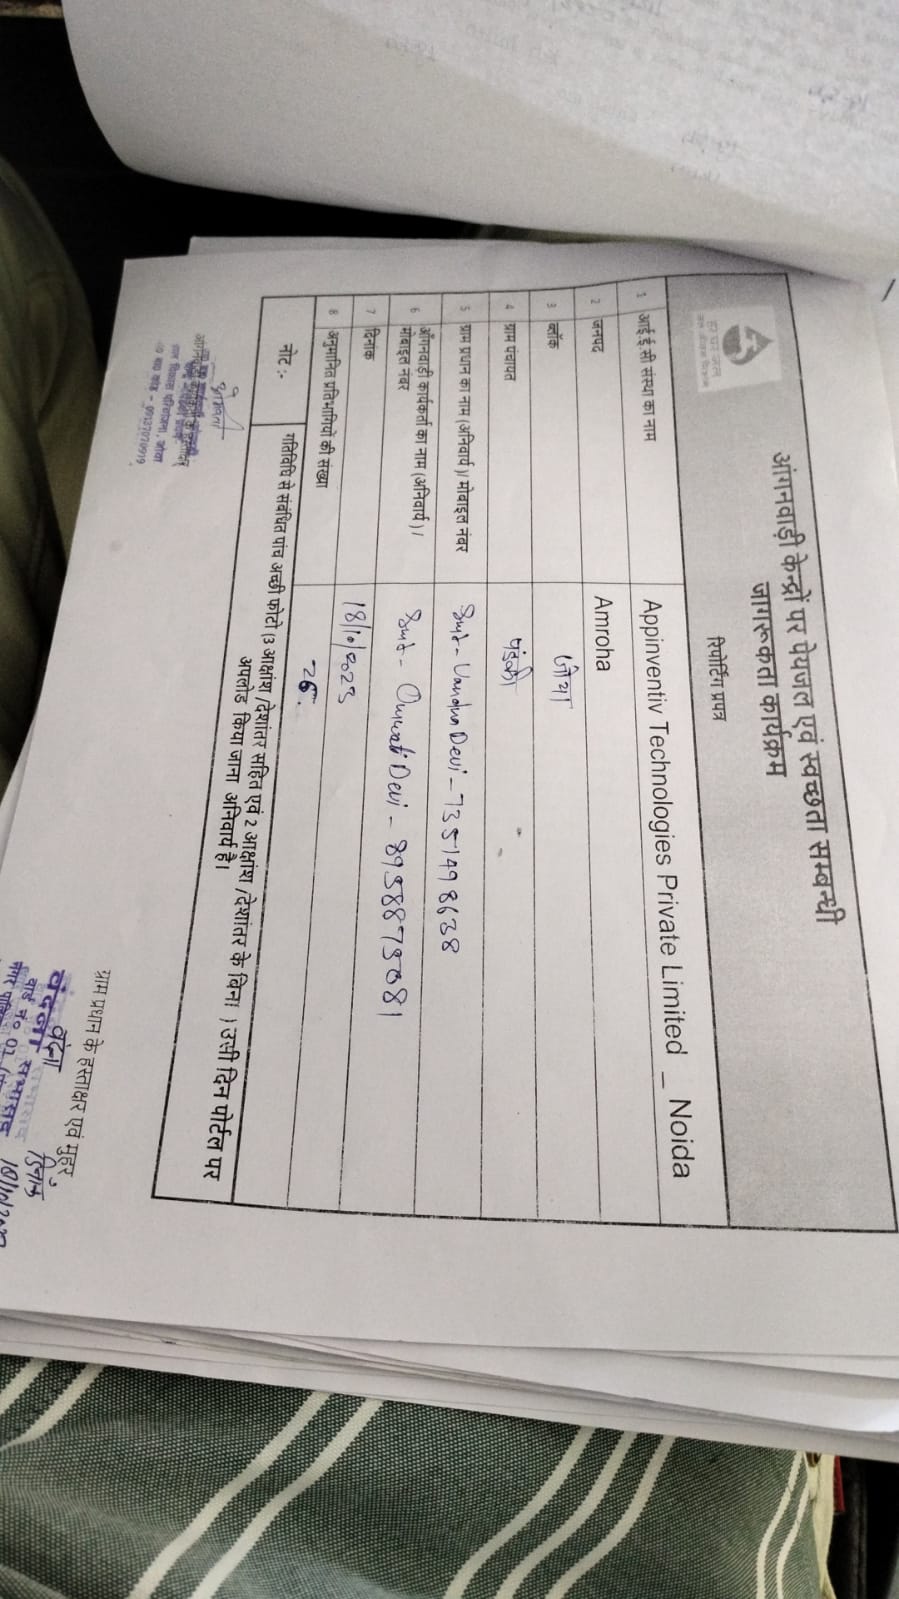 आंगनवाड़ी केन्द्रों पर पेयजल एवं स्वच्छता सम्बन्धी
जागरूकता कार्यक्रम
रिपोर्टिंग प्रपत्र
हर घर जल
जल जीवन मिशन
1 आई.ई.सी संस्था का नाम Appinventiv Technologies Private Limited _ Noida
2 जनपद Amroha
3 ब्लॉक जोया
4 ग्राम पंचायत
5 ग्राम प्रधान का नाम (अनिवार्य)/ मोबाइल नंबर Smt- Vandna Devi - 7351498638
6 आँगनवाड़ी कार्यकर्ता का नाम (अनिवार्य) /
मोबाइल नंबर Smt- Omwati Devi - 8958875081
7 दिनांक 18/10/2025
8 अनुमानित प्रतिभागियों की संख्या 26.
नोट :- गतिविधि से संबंधित पांच अच्छी फोटो (3 आक्षांश /देशांतर सहित एवं 2 आक्षांश /देशांतर के बिना ) उसी दिन पोर्टल पर
अपलोड किया जाना अनिवार्य है।
बाल विकास परियोजना, जोया
ग्राम प्रधान के हस्ताक्षर एवं मुहर
वंदना
वन्दना सभासद
वार्ड नं० 01